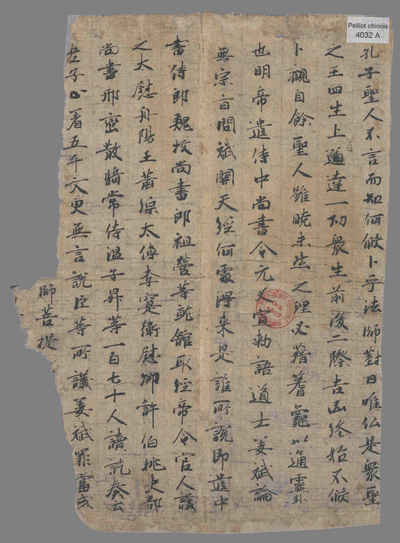 Pelliot chinois
4032 A
孔子聖人不言而知何假卜乎法師對曰唯仏是衆聖
之王四生上通達一切衆生前後二際吉凶終始不假
卜觀自餘聖人雖曉未然之理必藉蓍龜以通靈卦
也明帝遣侍中尚書令元乂宣勑語道士姜斌論
無宗旨問斌開天經何處得来是誰所說即遣中
書侍郎魏收尚書郎祖瑩等就館取經帝令官人議
之太慰丹陽王蕭綜太傅李寔衛慰卿許伯桃吏部
尚書邢巒散騎常侍温子昇等一百七十人讀訖奏云
老子止著五千文更無言說臣等所議姜斌罪當或
師菩提